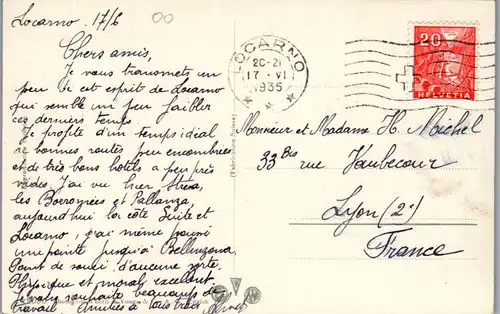 Locarno. 17/6
Chers amis,
Je vous transmets un
peu de cet esprit de Locarno
qui semble un peu faiblir
ces derniers temps.
Je profite d'un temps idéal
de bonnes routes peu encombrées
et de très bons hôtels à peu près
vides. J'ai vu hier Stresa,
les Borromées et Pallanza,
aujourd'hui la côte Suisse et
Locarno, j'ai même poussé
une pointe jusqu'à Bellinzona.
Point de souci, d'aucune sorte.
Physique et moral excellent.
Je vous souhaite beaucoup de
travail. Amitiés à tous trois.
LOCARNO
20-21
17.VI
1935
20
HELVETIA
Monsieur et Madame H. Michel
33 Bis rue Vaubecour
Lyon (2e)
France